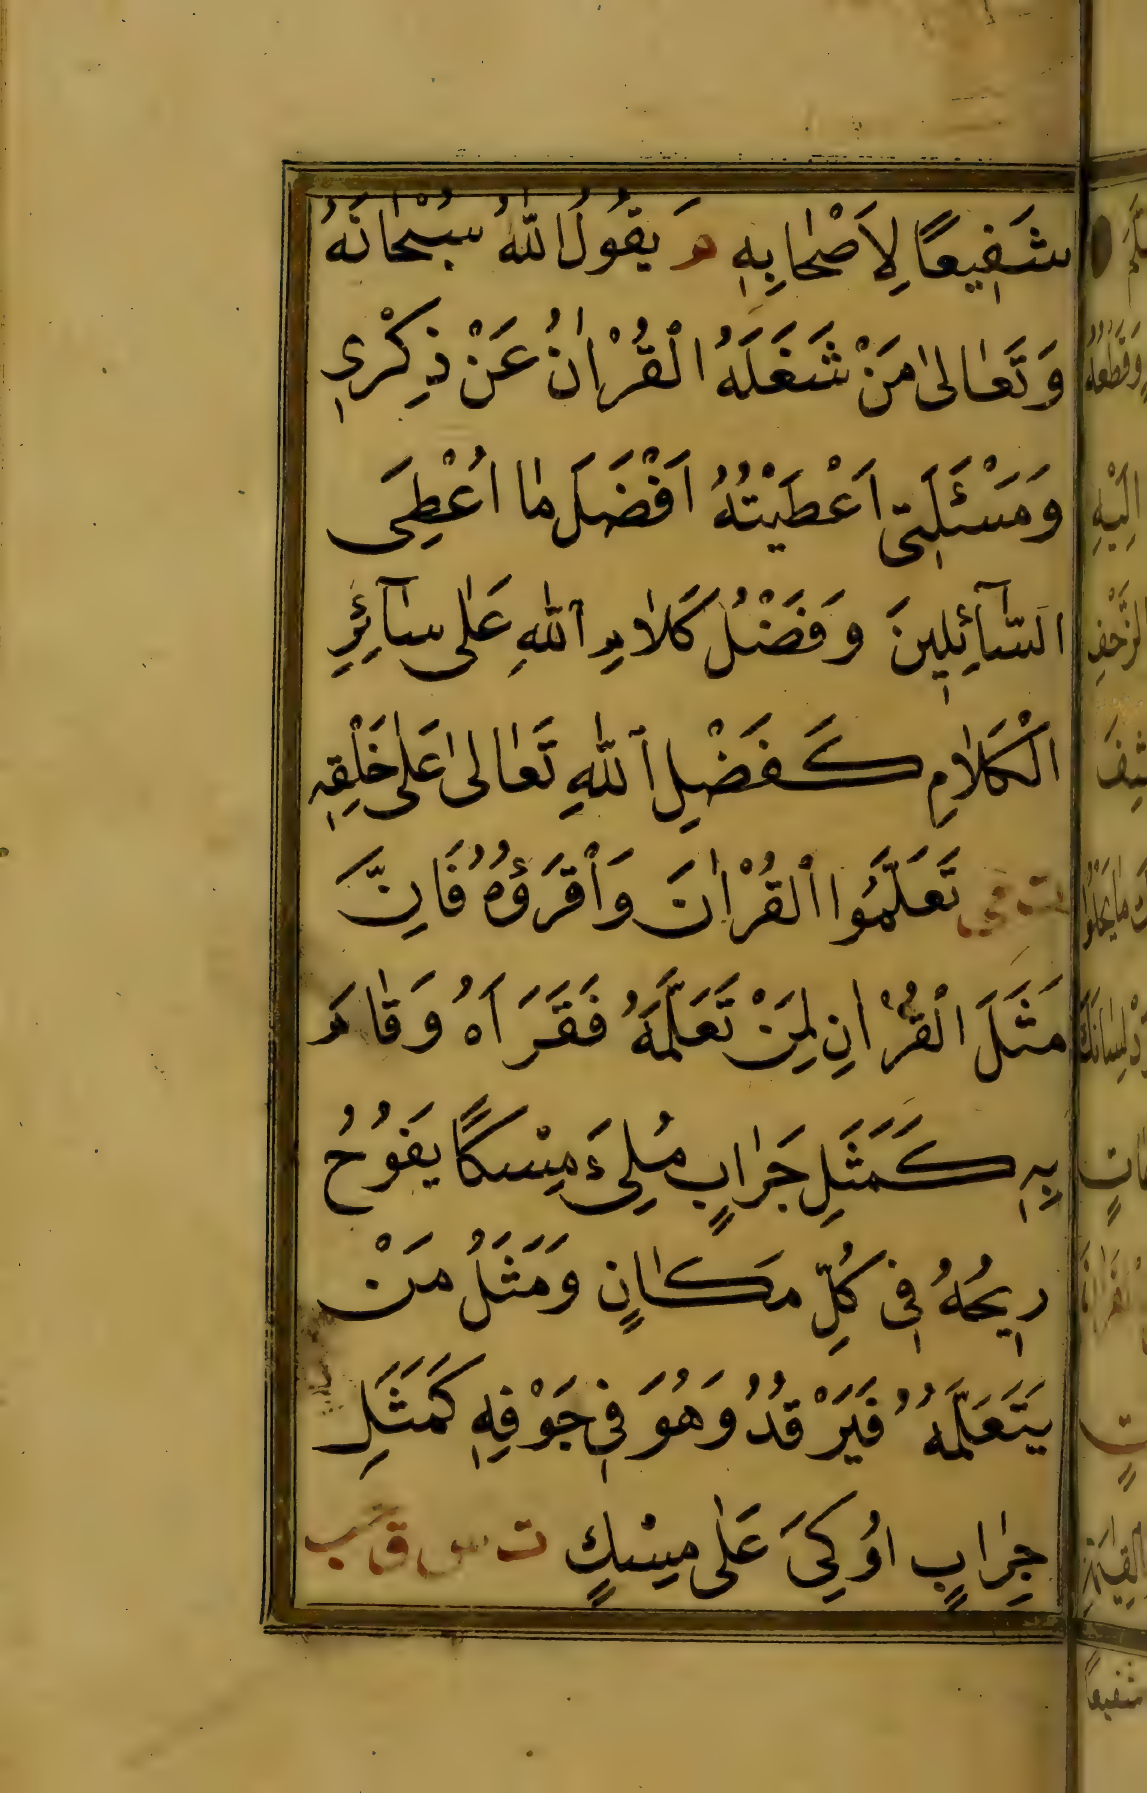 شَفِيعًا لِاَصْحَابِهٖ م يَقُولُ اللّٰهُ سُبْحَانَهُ
وَتَعَالٰى مَنْ شَغَلَهُ الْقُرْاٰنُ عَنْ ذِكْرٖى
وَمَسْئَلَتٖى اَعْطَيْتُهُ اَفْضَلَ مَا اُعْطِىَ
السَّآئِلٖينَ وَفَضْلُ كَلَامِ اللّٰهِ عَلٰى سَآئِرِ
الْكَلَامِ كَفَضْلِ اللّٰهِ تَعَالٰى عَلٰى خَلْقِهٖ
ت مى تَعَلَّمُوا الْقُرْاٰنَ وَاقْرَؤُهُ فَاِنَّ
مَثَلَ الْقُرْاٰنِ لِمَنْ تَعَلَّمَهُ فَقَرَاَهُ وَقَامَ
بِهٖ كَمَثَلِ جَرَابٍ مُلِئَ مِسْكًا يَفُوحُ
رٖيحُهُ فٖى كُلِّ مَكَانٍ وَمَثَلُ مَنْ
يَتَعَلَّمُهُ فَيَرْقُدُ وَهُوَ فٖى جَوْفِهٖ كَمَثَلِ
جِرَابٍ اُوكِىَ عَلٰى مِسْكٍ ت س ق حب